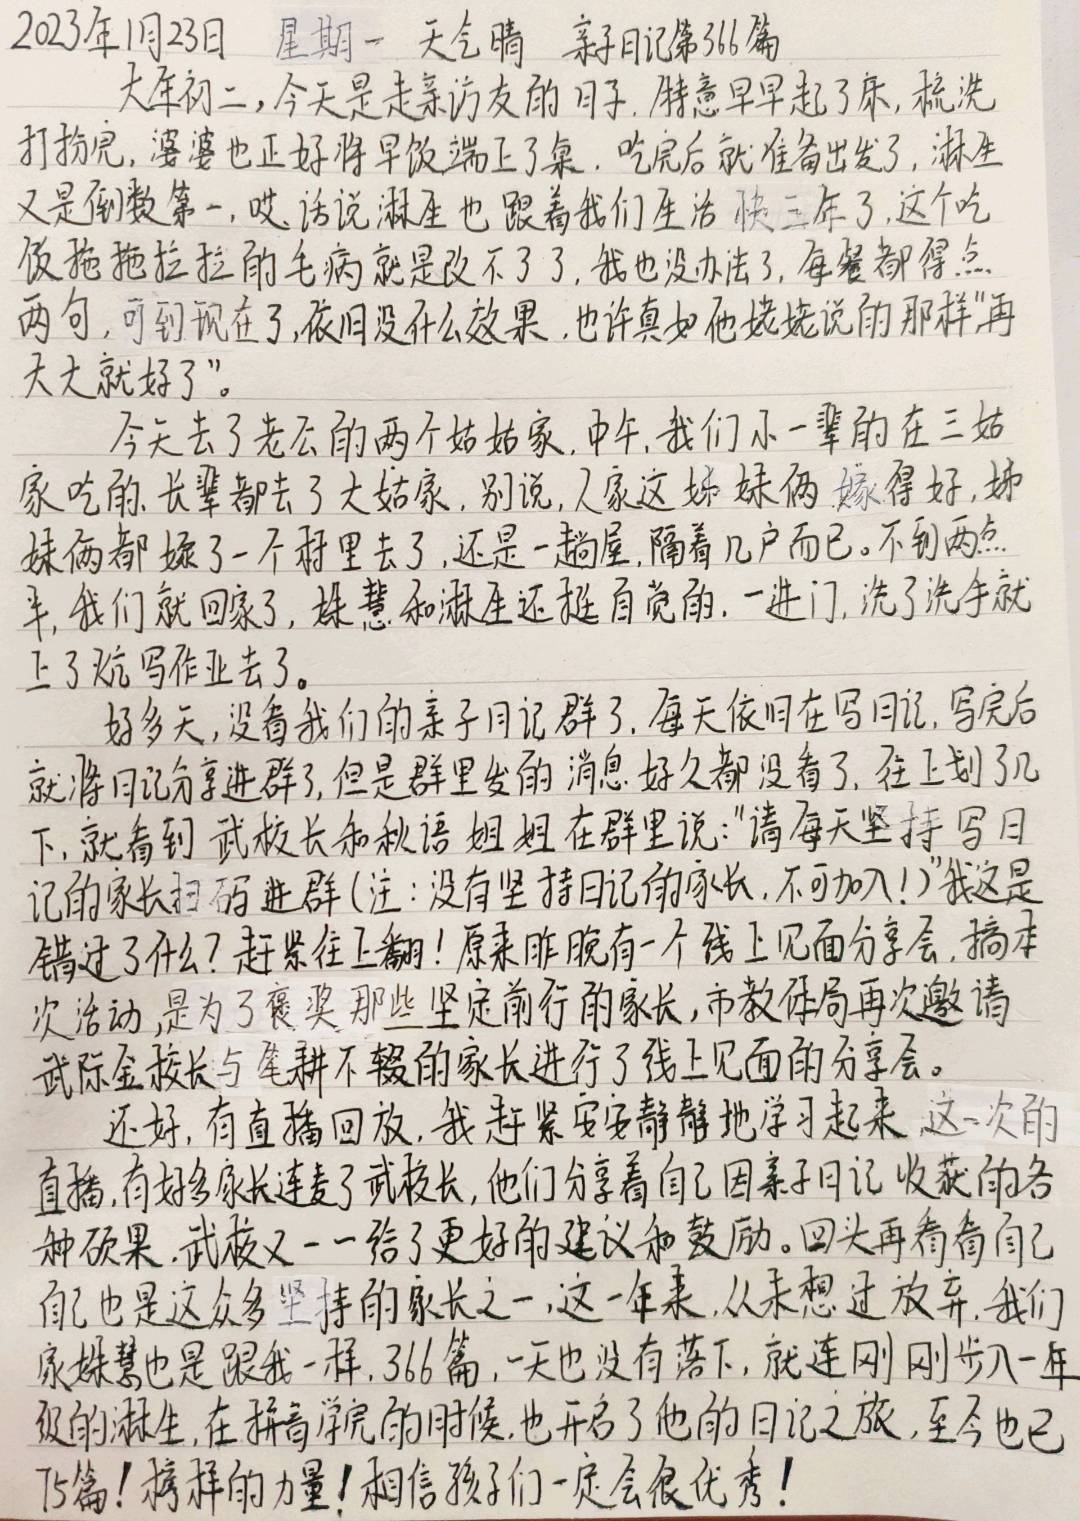 2023年1月23日 星期一 天气晴 亲子日记第366篇
大年初二,今天是走亲访友的日子.特意早早起了床,梳洗
打扮完,婆婆也正好将早饭端上了桌.吃完后就准备出发了,淋生
又是倒数第一,哎.话说淋生也跟着我们生活快三年了,这个吃
饭拖拖拉拉的毛病就是改不了了,我也没办法了,每餐都得点
两句,可到现在了,依旧没什么效果.也许真如他姥姥说的那样"再
大大就好了"。
今天去了老公的两个姑姑家.中午,我们小一辈的在三姑
家吃的.长辈都去了大姑家,别说,人家这姊妹俩嫁得好,姊
妹俩都嫁了一个村里去了,还是一趟屋,隔着几户而已。不到两点
半,我们就回家了,姝慧和淋生还挺自觉的.一进门,洗了洗手就
上了炕写作业去了。
好多天,没看我们的亲子日记群了.每天依旧在写日记,写完后
就将日记分享进群了,但是群里发的消息好久都没看了,往上划了几
下,就看到武校长和秋语姐姐在群里说:"请每天坚持写日
记的家长扫码进群(注:没有坚持日记的家长,不可加入!)"我这是
错过了什么?赶紧往上翻!原来昨晚有一个线上见面分享会,搞本
次活动,是为了褒奖那些坚定前行的家长,市教体局再次邀请
武际金校长与笔耕不辍的家长进行了线上见面的分享会。
还好,有直播回放,我赶紧安安静静地学习起来.这一次的
直播,有好多家长连麦了武校长,他们分享着自己因亲子日记收获的各
种硕果.武校又一一给了更好的建议和鼓励。回头再看看自己
自己也是这众多坚持的家长之一,这一年来,从未想过放弃.我们
家姝慧也是跟我一样,366篇,一天也没有落下,就连刚刚步入一年
级的淋生,在拼音学完的时候,也开启了他的日记之旅,至今也已
75篇!榜样的力量!相信孩子们一定会很优秀!